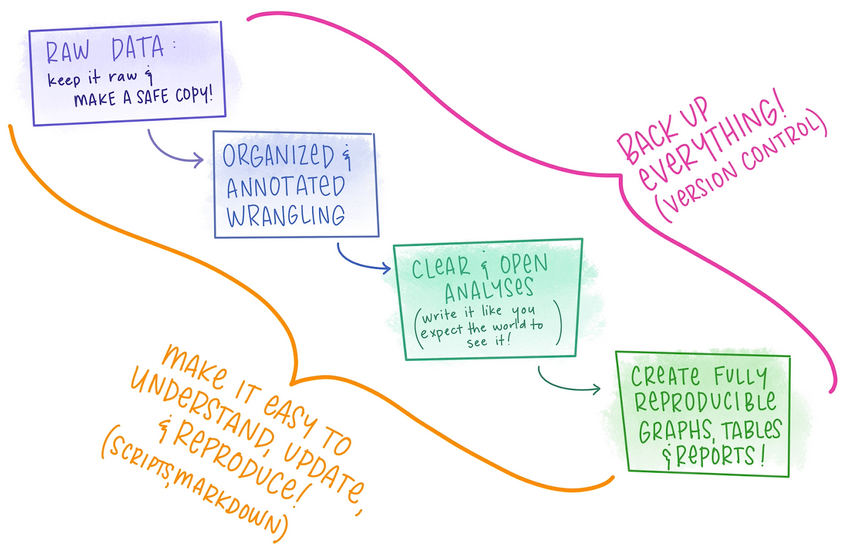 RAW DATA:
keep it raw &
MAKE A SAFE COPY!
ORGANIZED &
ANNOTATED
WRANGLING
CLEAR & OPEN
ANALYSES
(write it like you
expect the world to
see it!)
CREATE FULLY
REPRODUCIBLE
GRAPHS, TABLES
& REPORTS!
BACK UP
EVERYTHING!
(VERSION CONTROL)
MAKE IT EASY TO
UNDERSTAND, UPDATE,
& REPRODUCE!
(SCRIPTS, MARKDOWN)